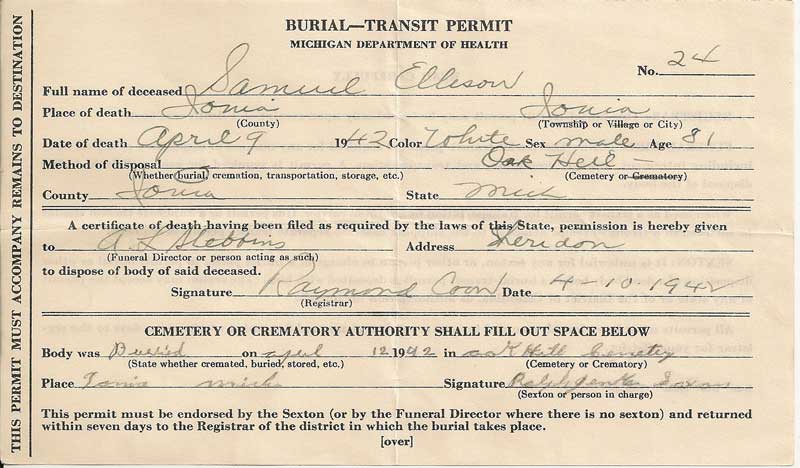 THIS PERMIT MUST ACCOMPANY REMAINS TO DESTINATION
BURIAL—TRANSIT PERMIT
MICHIGAN DEPARTMENT OF HEALTH
No. 24
Full name of deceased Samuel Ellison
Place of death Ionia Ionia
(County) (Township or Village or City)
Date of death April 9 1942 Color White Sex male Age 81
Method of disposal Oak Hill —
(Whether burial, cremation, transportation, storage, etc.) (Cemetery or Crematory)
County Ionia State Mich
A certificate of death having been filed as required by the laws of this State, permission is hereby given
to A. L. Stebbins Address Sheridon
(Funeral Director or person acting as such)
to dispose of body of said deceased.
Signature Raymond Coon Date 4-10-1942
(Registrar)
CEMETERY OR CREMATORY AUTHORITY SHALL FILL OUT SPACE BELOW
Body was Buried on april 12 1942 in oak Hill Cemetery
(State whether cremated, buried, stored, etc.) (Cemetery or Crematory)
Place Ionia mich Signature Ralph
(Sexton or person in charge)
This permit must be endorsed by the Sexton (or by the Funeral Director where there is no sexton) and returned
within seven days to the Registrar of the district in which the burial takes place.
[over]